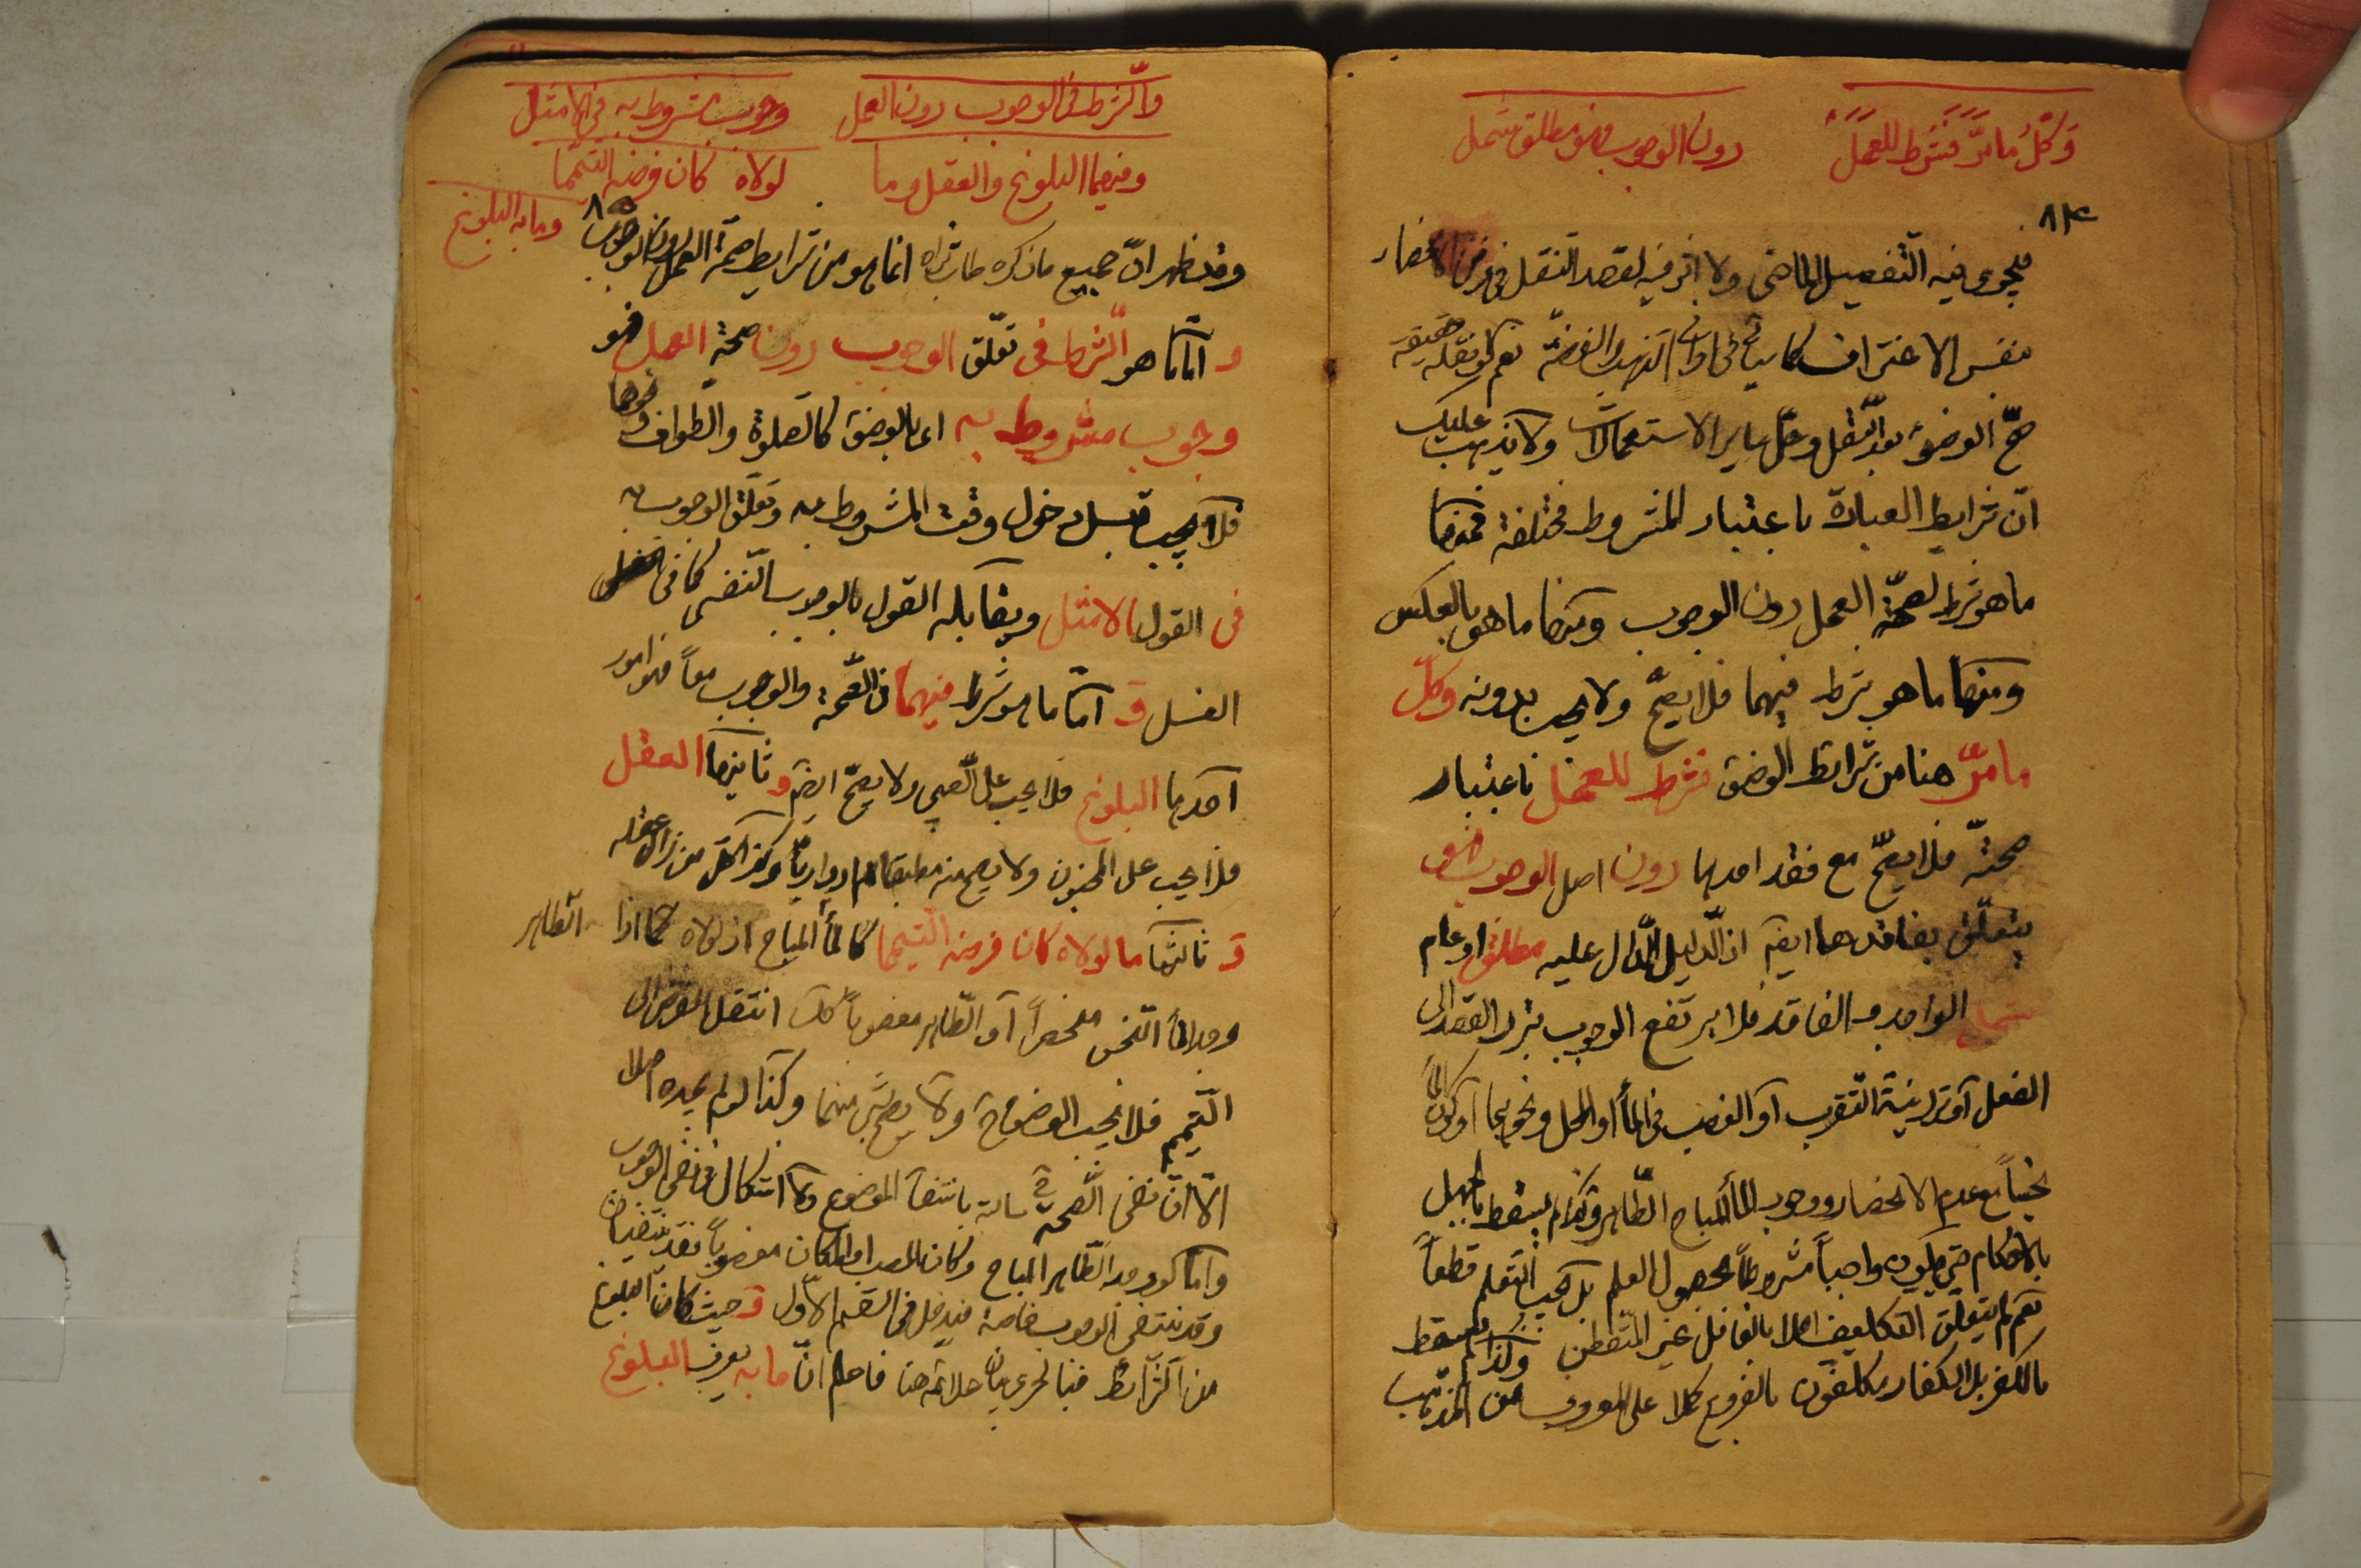 وكلّ ما مرّ فشرط للعمل دون الوجوب فهو مطلق شمل
٨٤
فيجرى فيه التفصيل الماضى ولا اثر فيه لقصد النقل فى فرض الانحصار
بنفس الاغتراف كما ياتى فى اوانى الذهب والفضة نعم لو نقله حقيقة
صحّ الوضوء بعد النقل وحلّ ساير الاستعمالات ولا يذهب عليك
انّ شرايط العبادة باعتبار المشروط مختلفة فمنها
ما هو شرط لصحّة العمل دون الوجوب ومنها ما هو بالعكس
ومنها ما هو شرط فيهما فلا يصحّ ولا يجب بدونه وكلّ
ما مرّ هنا من شرايط الوضوء فشرط للعمل باعتبار
صحّته فلا يصحّ مع فقد احدها دون اصل الوجوب فهو
يتعلّق بفاقدها ايضا اذ الدّليل الدّال عليه مطلق او عام
شمل الواجد والفاقد فلا يرتفع الوجوب بترك القصد الى
الفعل او ترك نية التقرب او الغصب فى الماء او المحل ونحوهما او كون الماء
نجساً مع عدم الانحصار ووجود الماء المباح الطّاهر وكذا لم يسقط بالجهل
بالاحكام حتى يكون واجباً مشروطاً بحصول العلم بل يجب التعلم قطعاً
نعم لم يتعلق التكليف اصلا بالغافل غير المتفطن وكذا لم يسقط
بالكفر بل الكفار مكلفون بالفروع كملا على المعروف من المذهب
والشرط فى الوجوب دون العمل وجوب مشروط به فى الامثل
وفيهما البلوغ والعقل وما لولاه كان فرضه التيمّما
وما به البلوغ
٨٥
وقد ظهر انّ جميع ما ذكره طاب ثراه انما هو من شرايط صحة العمل دون الوجوب
و امّا ما هو الشرط فى تعلّق الوجوب دون صحة العمل فهو
وجوب مشروط به اى بالوضوء كالصلوة والطواف ونحوهما
فلا يجب قبل دخول وقت المشروط به وتعلّق الوجوب به
فى القول الامثل ويقابله القول بالوجوب النفسى كما فى
الغسل و امّا ما هو شرط فيهما فى الصّحة والوجوب معاً فهو امور
احدها البلوغ فلا يجب على الصّبى ولا يصحّ ايضا و ثانيها العقل
فلا يجب على المجنون ولا يصح منه مطبقا ام ادوارياً وكذا كلّ من زال عقله
و ثالثها ما لولاه كان فرضه التيمّما كالماء المباح اذ لولاه كما اذا الطاهر
وجد الماء النجس منحصراً او الطّاهر مغصوباً كك انتقل الفرض الى
التّيمم فلا يجب الوضوء ح ولا يصحّ شىء منهما وكذا لو لم يجده اصلا
الّا انّ نفى الصّحة ح سالبة بانتفاء الموضوع ولا اشكال فى نفى الوجوب
وامّا لو وجد الطّاهر المباح وكان المصب او المكان مغصوباً فقد ينتفيان
وقد ينتفى الوجوب خاصة فيدخل فى القسم الاوّل و حيث كان البلوغ
من الشّرايط فبالحرى بيان علائمه هنا فاعلم انّ ما به يعرف البلوغ